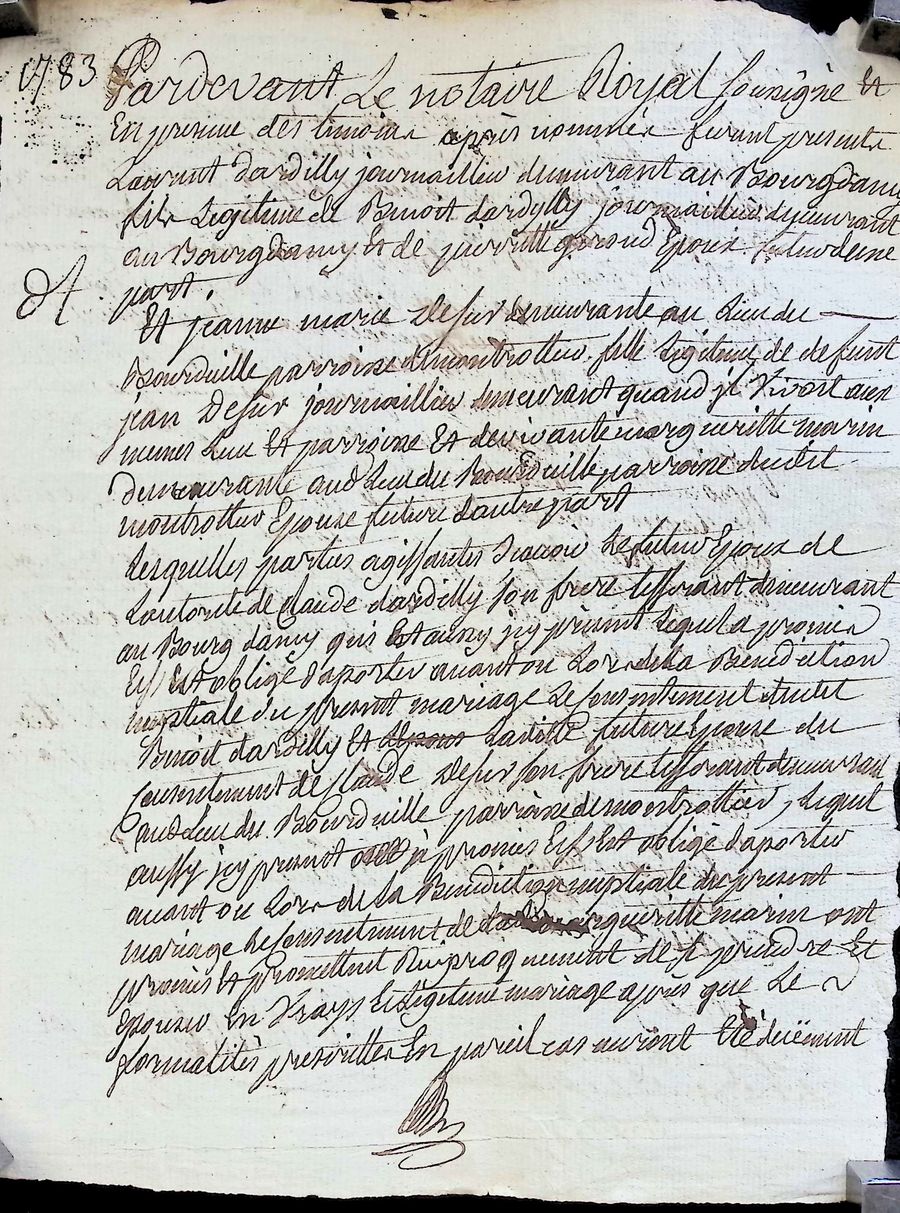 1783
Pardevant Le notaire Royal sousigné Et
En presence des temoins après nommés furent presents
Laurent dardilly journaillier demeurant au Bourg damy
fils Legitime de Benoit dardylly journaillier demeurant
au Bourg damy Et de pierrette giroud Epoux futur d'une
part.
Et jeanne marie Desur demeurante au Lieu du
Bourdville parroisse de montrottier, fille Legitime de defunt
jean Desur journaillier demeurant quand jl Vivoit aux
memes Lieu Et parroisse Et de vivante margueritte marin
demeurante aud Lieu du Bourdville parroisse dudit
montrottier Epouse future d'autre part
Lesquelles parties agissantes scavoir Le futur Epoux de
L'autorité de Claude dardilly son frere tisserant demeurant
au Bourg damy qui Et aussy jcy présent Lequel a promis
Et s'Est obligé d'aporter avant ou Lors de La Benediction
nuptiale du present mariage Le consentement dudit
Benoit dardilly Et Laditte future Epouse du
consentement de Claude Desur son frere tisserant demeurant
aud Lieu du Bourdville parroisse de montrottier, Lequel
aussy jcy present a promis Et s'Est obligé d'aporter
avant ou Lors de La Benediction nuptiale du present
mariage Le consentement de margueritte marin ont
promis Et promettent Reciproquement de se prendre Et
Epouser En Vrays Et Légitime mariage après que Les
formalités prescrittes En pareil cas auront Eté deüement